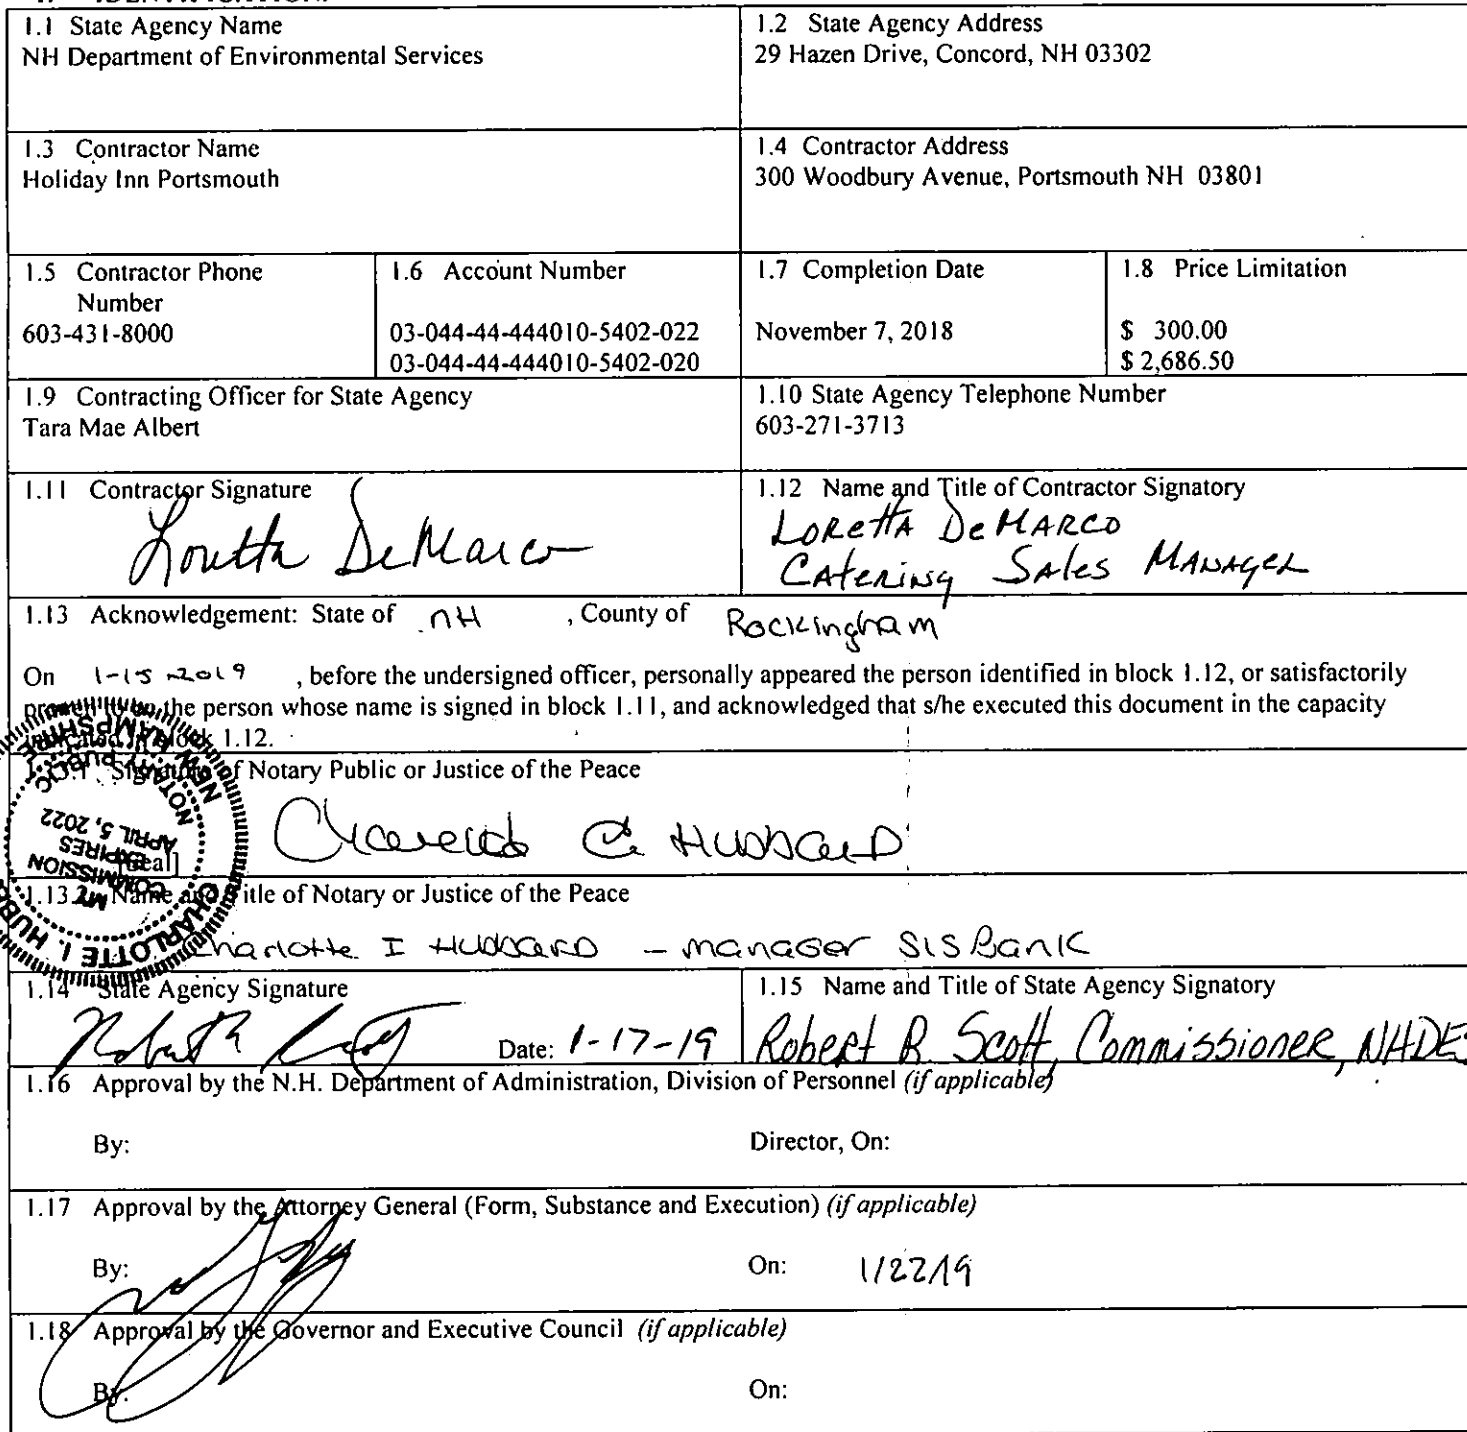 1.1 State Agency Name
NH Department of Environmental Services
1.2 State Agency Address
29 Hazen Drive, Concord, NH 03302
1.3 Contractor Name
Holiday Inn Portsmouth
1.4 Contractor Address
300 Woodbury Avenue, Portsmouth NH 03801
1.5 Contractor Phone
Number
603-431-8000
1.6 Account Number
03-044-44-444010-5402-022
03-044-44-444010-5402-020
1.7 Completion Date
November 7, 2018
1.8 Price Limitation
$ 300.00
$ 2,686.50
1.9 Contracting Officer for State Agency
Tara Mae Albert
1.10 State Agency Telephone Number
603-271-3713
1.11 Contractor Signature
Loretta DeMarco
1.12 Name and Title of Contractor Signatory
Loretta DeMarco
Catering Sales Manager
1.13 Acknowledgement: State of NH , County of Rockingham
On 1-15-2019 , before the undersigned officer, personally appeared the person identified in block 1.12, or satisfactorily
proven to be the person whose name is signed in block 1.11, and acknowledged that s/he executed this document in the capacity
indicated in block 1.12.
Signature of Notary Public or Justice of the Peace
Hubbard
[Seal]
NEW HAMPSHIRE
NOTARY PUBLIC
MY
COMMISSION
EXPIRES
APRIL 5, 2022
CHARLOTTE I. HUB
1.13.2 Name and Title of Notary or Justice of the Peace
Charlotte I Hubbard - manager SIS Bank
1.14 State Agency Signature
Date: 1-17-19
1.15 Name and Title of State Agency Signatory
Robert R. Scott, Commissioner, NHDES
1.16 Approval by the N.H. Department of Administration, Division of Personnel (if applicable)
By:
Director, On:
1.17 Approval by the Attorney General (Form, Substance and Execution) (if applicable)
By:
On: 1/22/19
1.18 Approval by the Governor and Executive Council (if applicable)
By:
On: